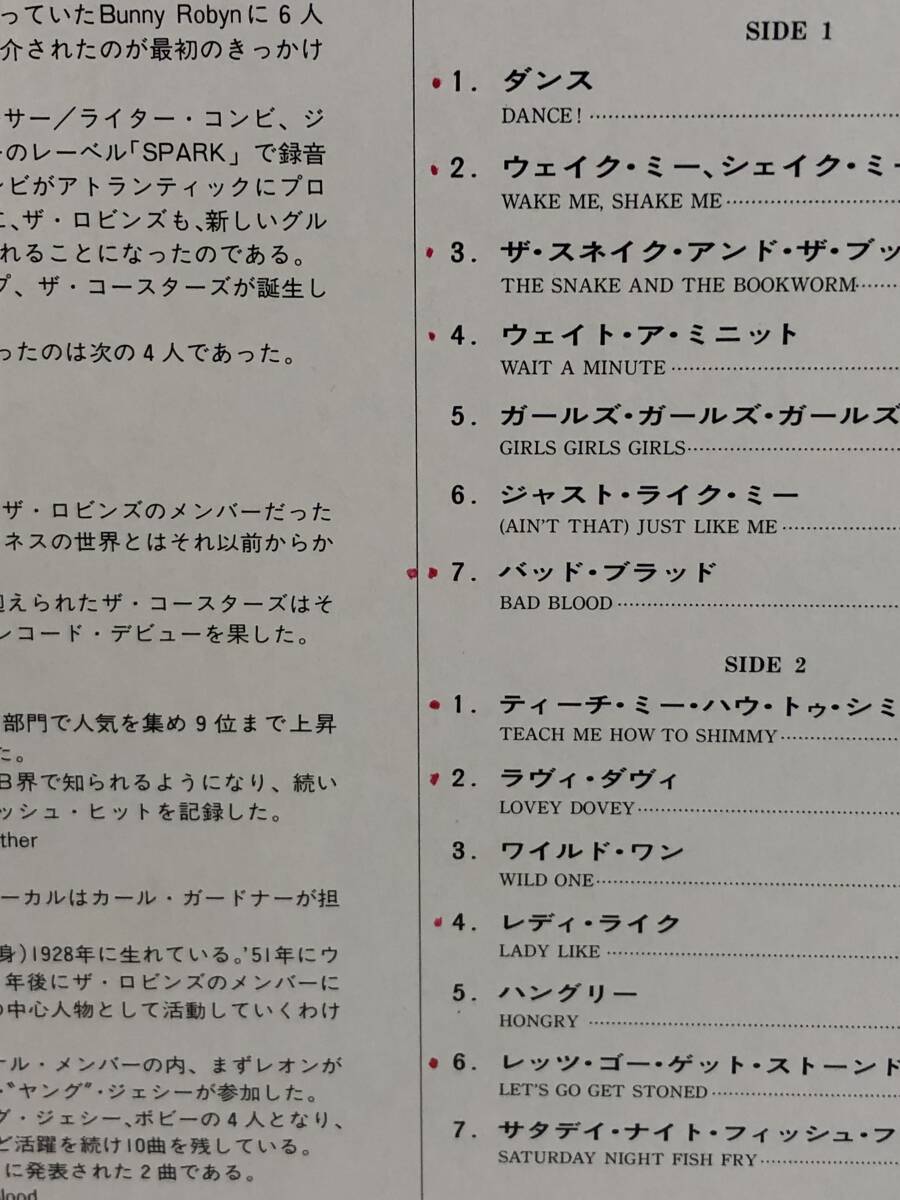 っていたBunny Robynに6人
介されたのが最初のきっかけ
サー／ライター・コンビ、ジ
のレーベル「SPARK」で録音
ンビがアトランティックにプロ
、ザ・ロビンズも、新しいグル
れることになったのである。
プ、ザ・コースターズが誕生し
ったのは次の4人であった。
ザ・ロビンズのメンバーだった
ネスの世界とはそれ以前からか
迎えられたザ・コースターズはそ
レコード・デビューを果した。
部門で人気を集め9位まで上昇
た。
B界で知られるようになり、続い
ッシュ・ヒットを記録した。
ther
ーカルはカール・ガードナーが担
身)1928年に生れている。'51年にウ
年後にザ・ロビンズのメンバーに
の中心人物として活動していくわけ
ナル・メンバーの内、まずレオンが
・“ヤング”・ジェシーが参加した。
グ・ジェシー、ボビーの4人となり、
ど活躍を続け10曲を残している。
に発表された2曲である。
Blood
SIDE 1
1. ダンス
DANCE!
2. ウェイク・ミー、シェイク・ミー
WAKE ME, SHAKE ME
3. ザ・スネイク・アンド・ザ・ブッ
THE SNAKE AND THE BOOKWORM
4. ウェイト・ア・ミニット
WAIT A MINUTE
5. ガールズ・ガールズ・ガールズ
GIRLS GIRLS GIRLS
6. ジャスト・ライク・ミー
(AIN'T THAT) JUST LIKE ME
7. バッド・ブラッド
BAD BLOOD
SIDE 2
1. ティーチ・ミー・ハウ・トゥ・シミ
TEACH ME HOW TO SHIMMY
2. ラヴィ・ダヴィ
LOVEY DOVEY
3. ワイルド・ワン
WILD ONE
4. レディ・ライク
LADY LIKE
5. ハングリー
HONGRY
6. レッツ・ゴー・ゲット・ストーンド
LET'S GO GET STONED
7. サタデイ・ナイト・フィッシュ・フ
SATURDAY NIGHT FISH FRY